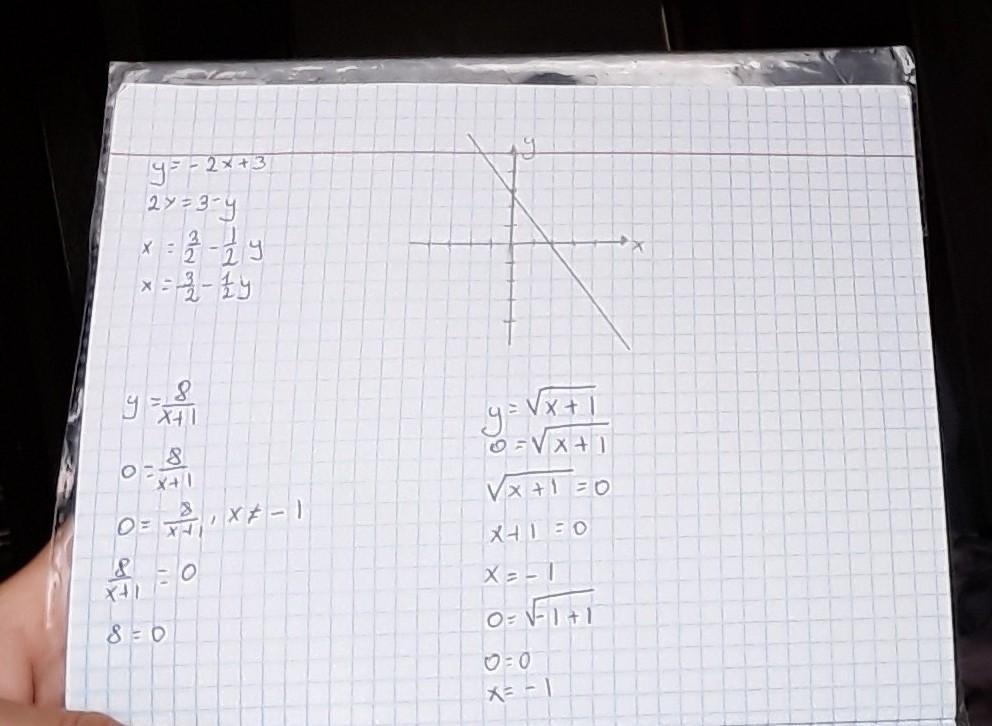 y = -2x+3
2x = 3-y
x = 3/2 - 1/2 y
x = 3/2 - 1/2 y
y
x
y = 8/x+1
0 = 8/x+1
0 = 8/x+1, x ≠ -1
8/x+1 = 0
8 = 0
y = √x+1
0 = √x+1
√x+1 = 0
x+1 = 0
x = -1
0 = √-1+1
0=0
x = -1